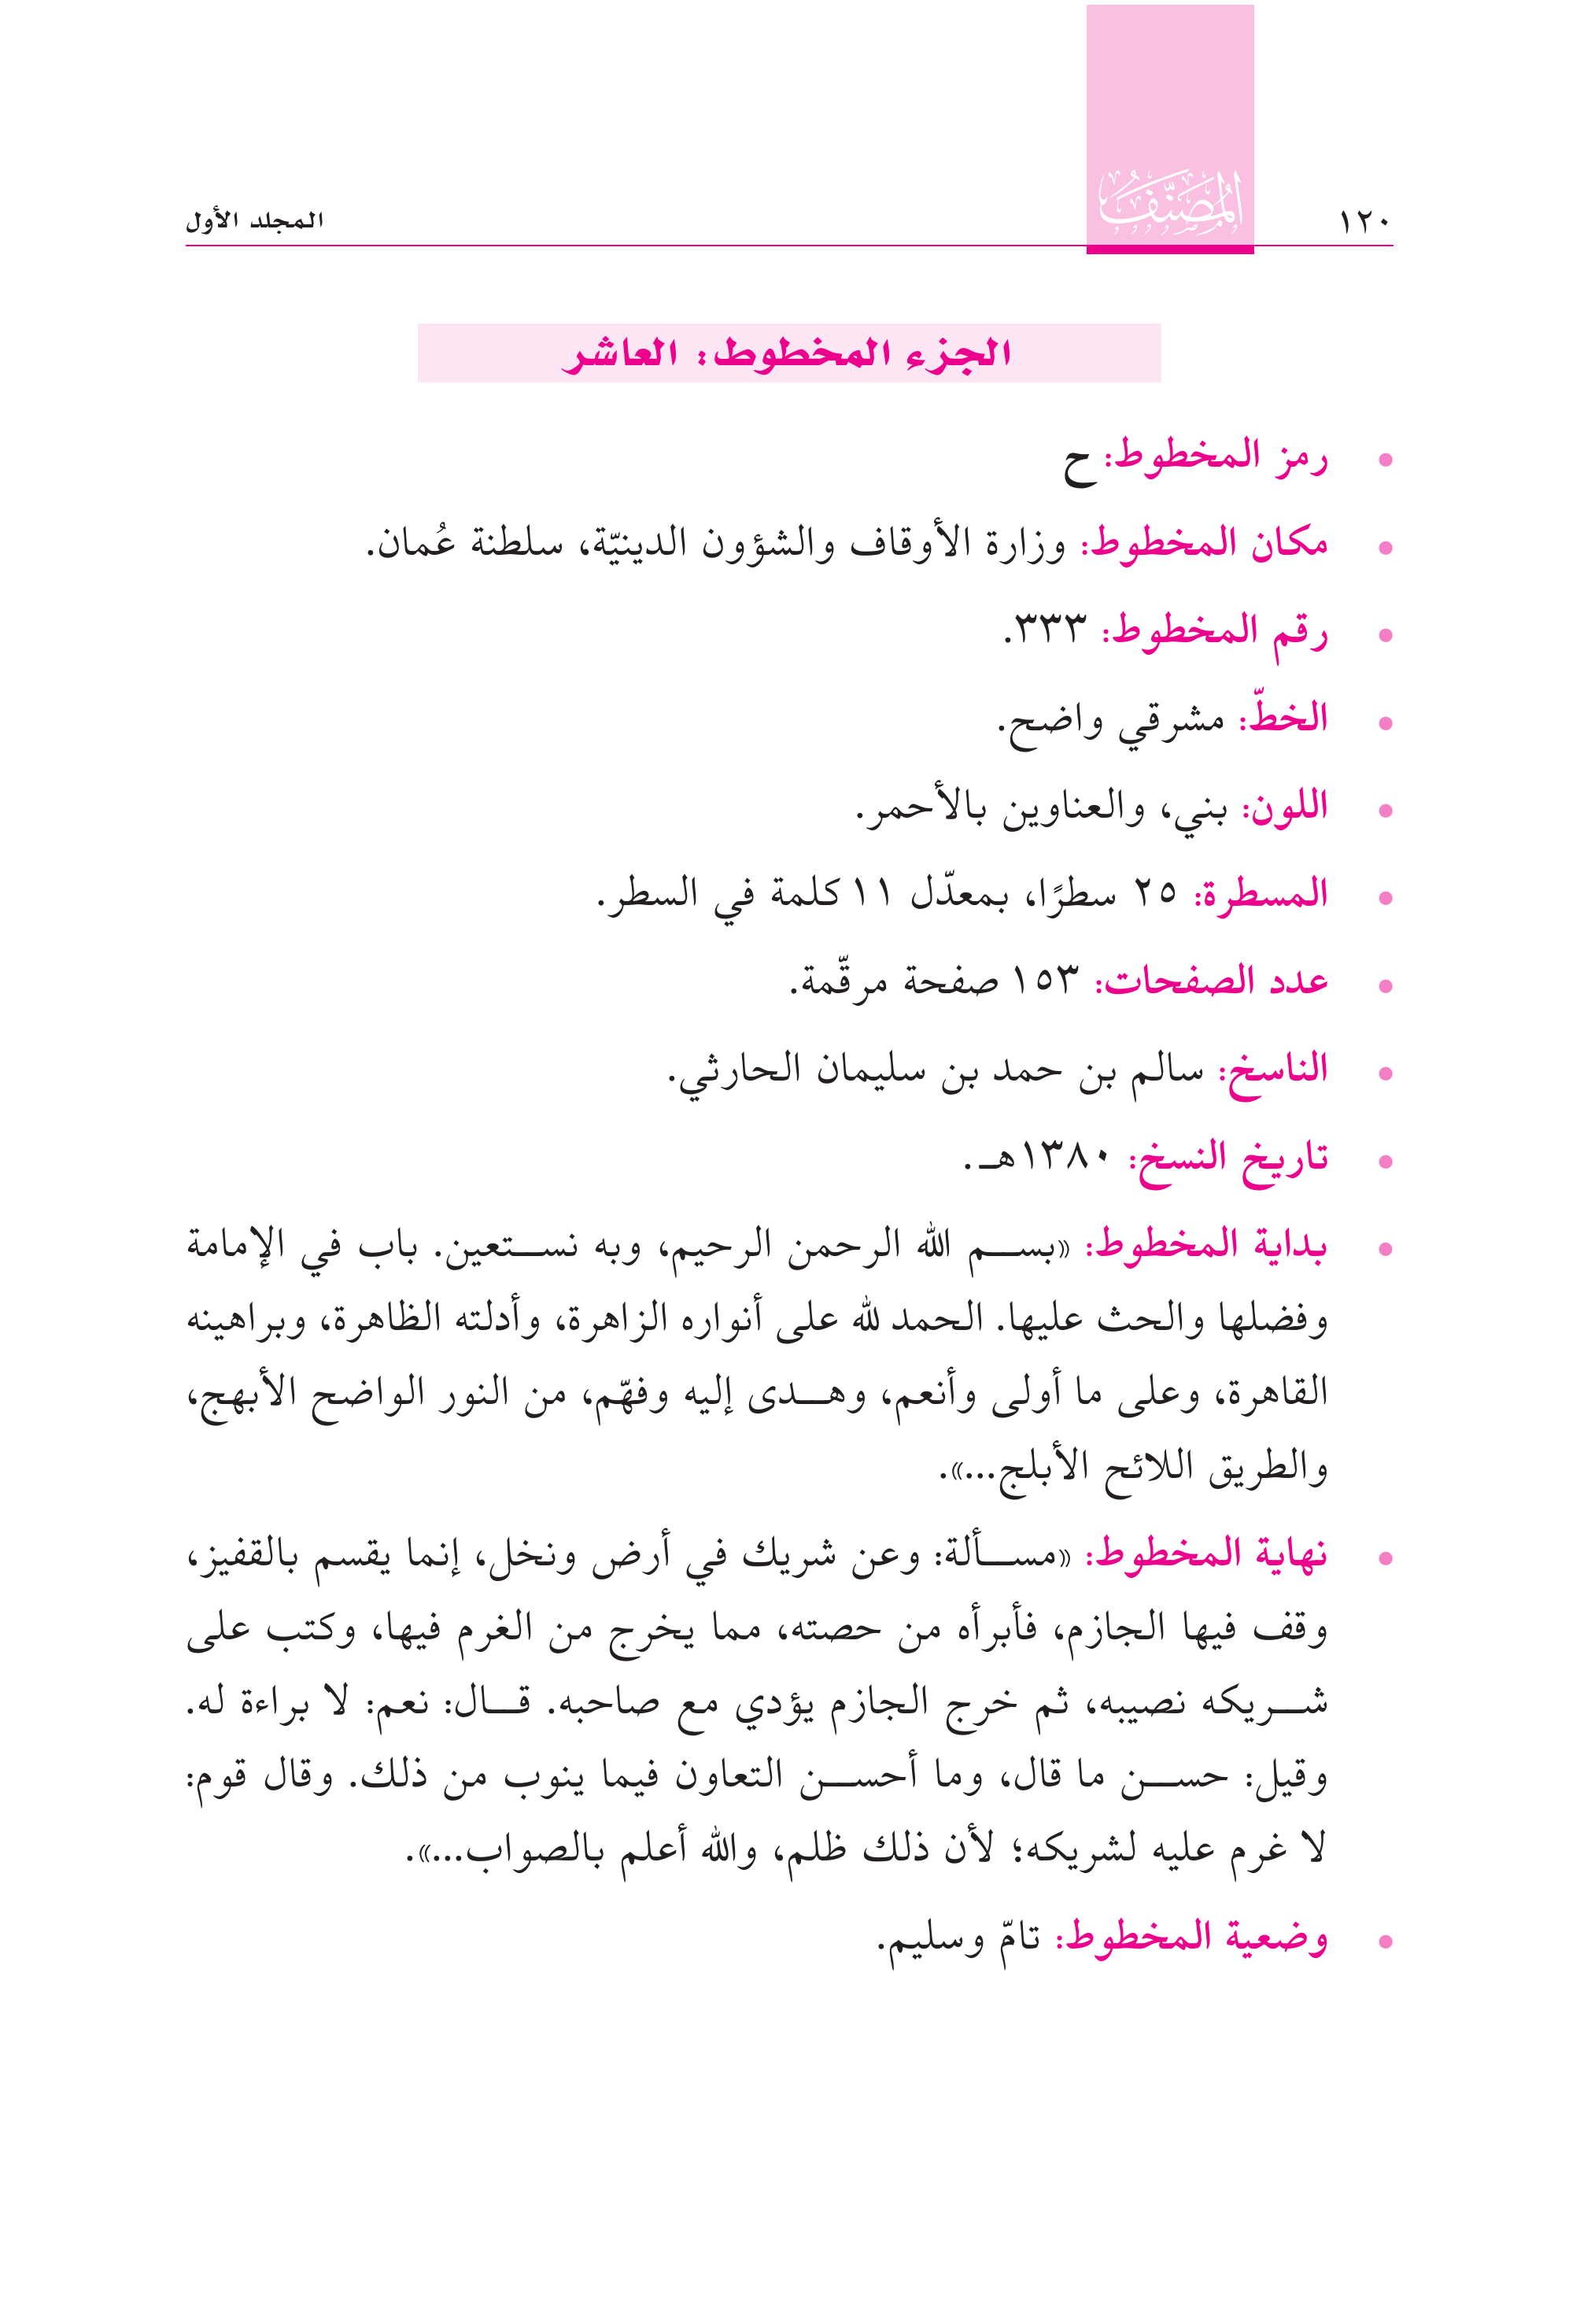 ١٢٠
المصنّف
المجلد الأول
الجزء المخطوط: العاشر
• رمز المخطوط: ح
• مكان المخطوط: وزارة الأوقاف والشؤون الدينيّة، سلطنة عُمان.
• رقم المخطوط: ٣٣٣.
• الخطّ: مشرقي واضح.
• اللون: بني، والعناوين بالأحمر.
• المسطرة: ٢٥ سطرًا، بمعدّل ١١ كلمة في السطر.
• عدد الصفحات: ١٥٣ صفحة مرقّمة.
• الناسخ: سالم بن حمد بن سليمان الحارثي.
• تاريخ النسخ: ١٣٨٠هـ.
• بداية المخطوط: «بسم الله الرحمن الرحيم، وبه نستعين. باب في الإمامة
وفضلها والحث عليها. الحمد لله على أنواره الزاهرة، وأدلته الظاهرة، وبراهينه
القاهرة، وعلى ما أولى وأنعم، وهدى إليه وفهّم، من النور الواضح الأبهج،
والطريق اللائح الأبلج...».
• نهاية المخطوط: «مسألة: وعن شريك في أرض ونخل، إنما يقسم بالقفيز،
وقف فيها الجازم، فأبرأه من حصته، مما يخرج من الغرم فيها، وكتب على
شريكه نصيبه، ثم خرج الجازم يؤدي مع صاحبه. قال: نعم: لا براءة له.
وقيل: حسن ما قال، وما أحسن التعاون فيما ينوب من ذلك. وقال قوم:
لا غرم عليه لشريكه؛ لأن ذلك ظلم، والله أعلم بالصواب...».
• وضعية المخطوط: تامّ وسليم.